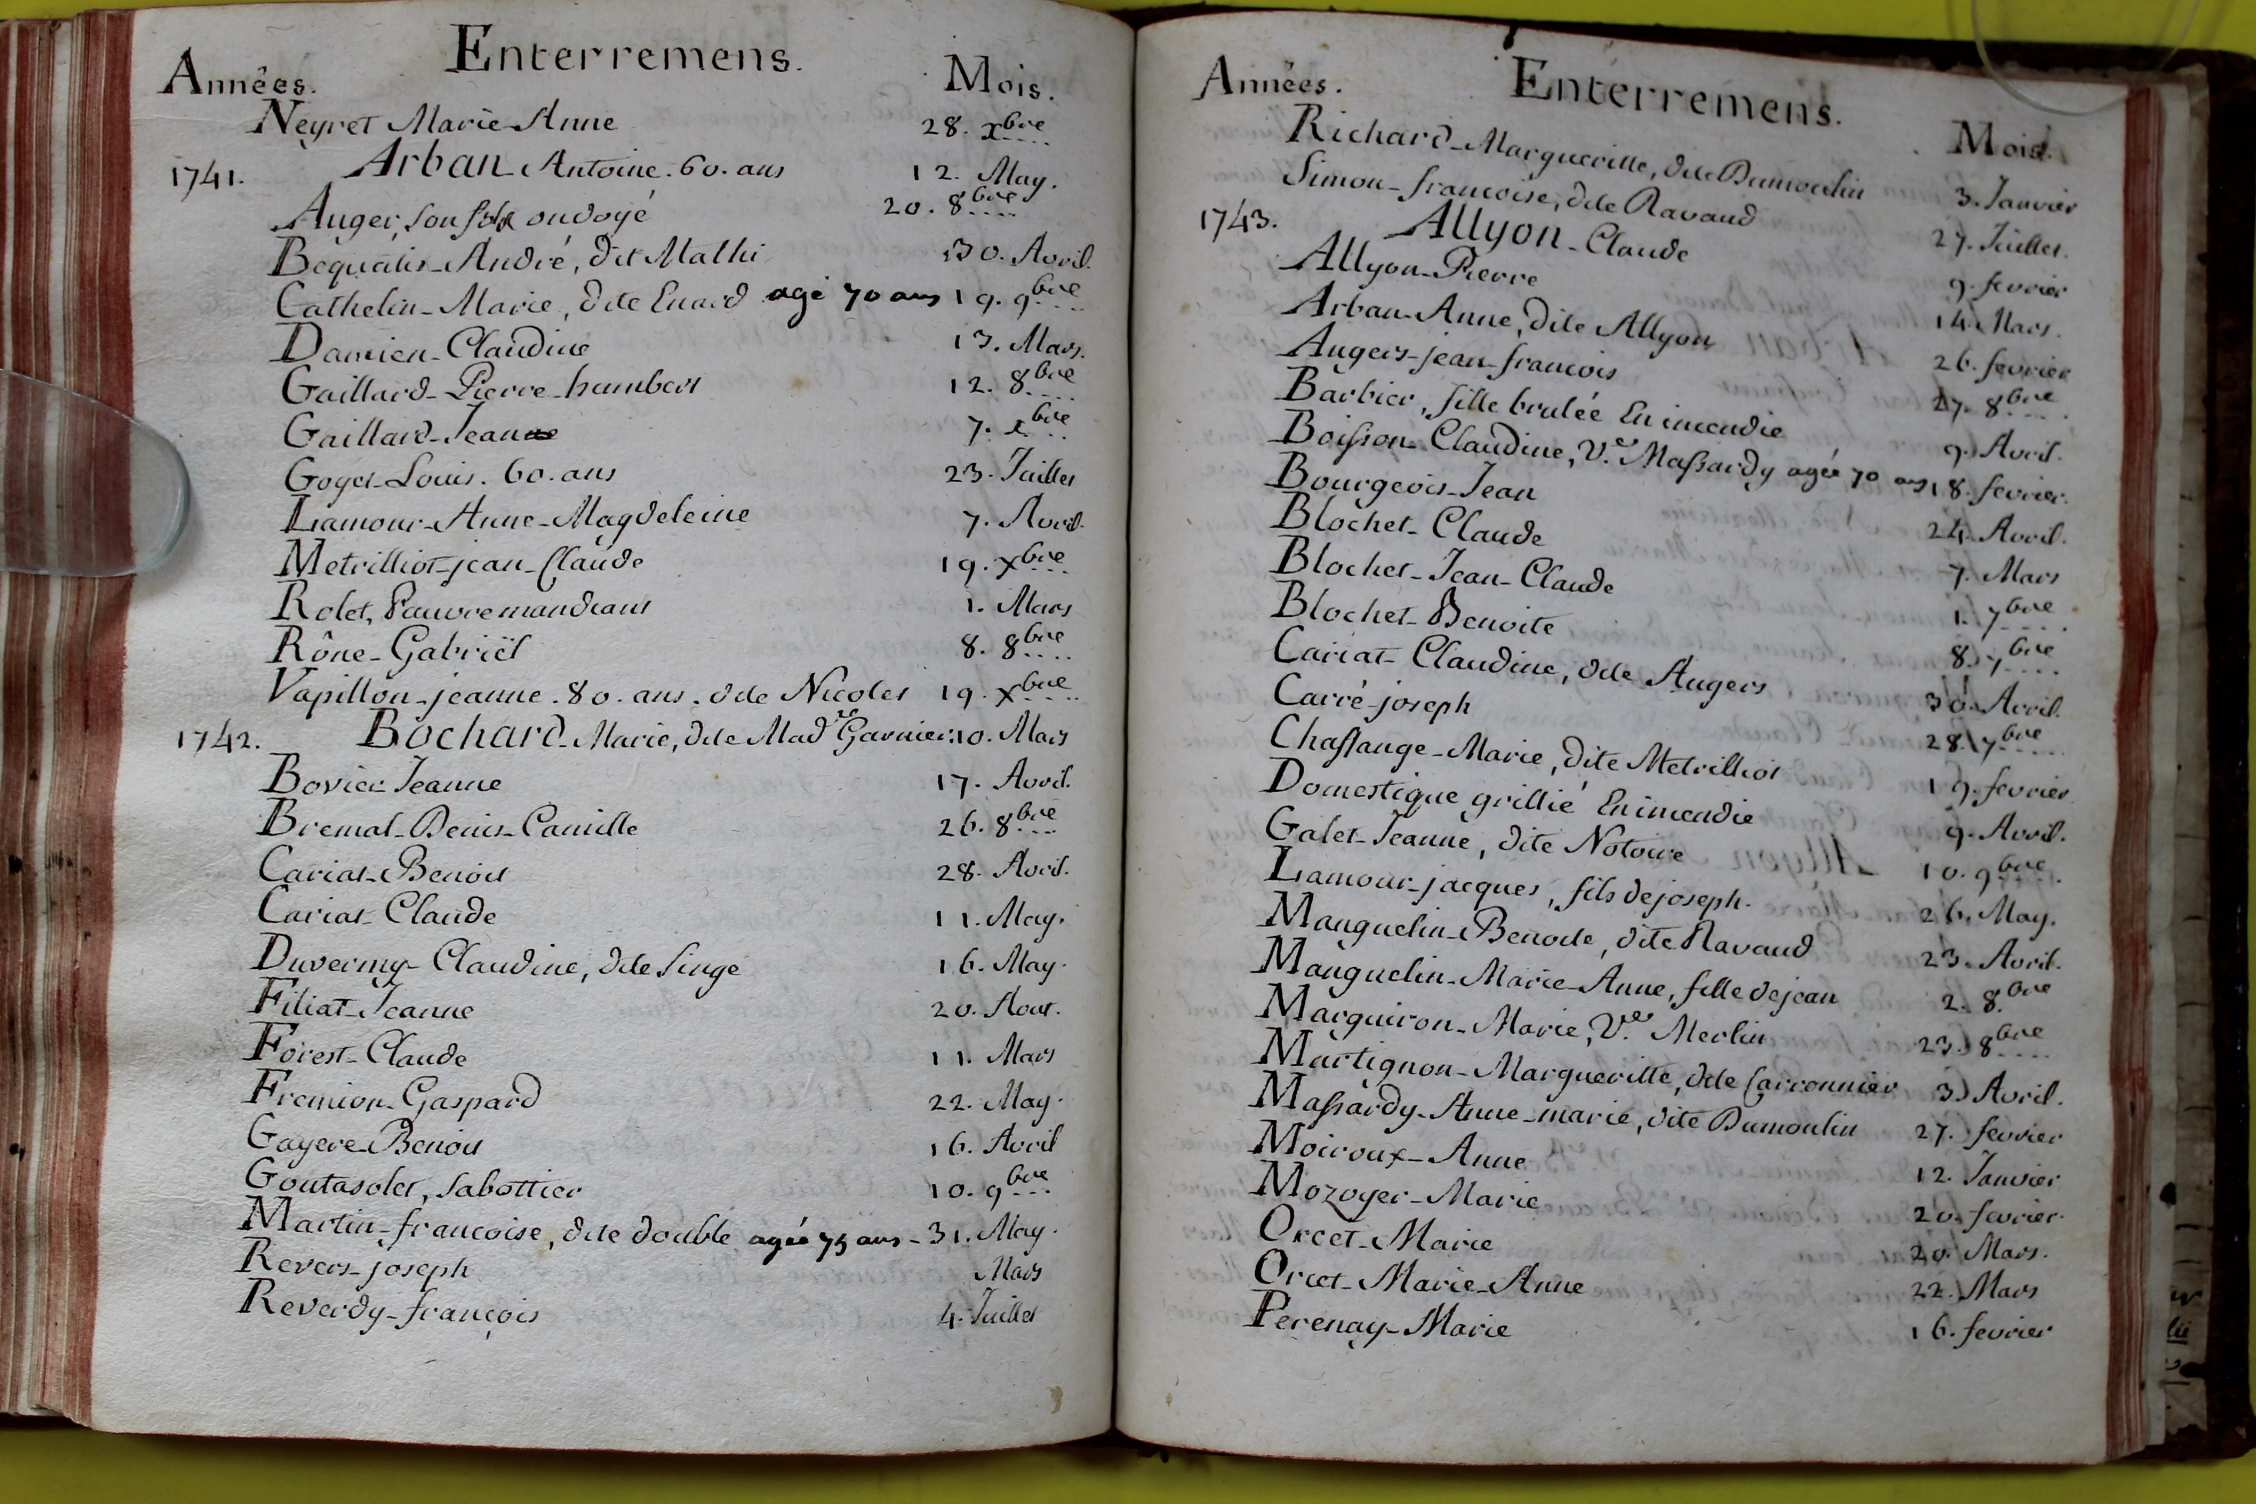 Enterremens.
Années. Mois.
Neyret Marie-Anne 28. xbre
1741. Arban Antoine. 60. ans 12. May.
Auger, son fils ondoyé 20. 8bre
Bequatis-André, dit Mathi 30. Avril.
Cathelin-Marie, dite Enard agé 70 ans 19. 9bre
Damien-Claudine 13. Mars.
Gaillard-Pierre-humbert 12. 8bre
Gaillard-Jean 7. xbre
Goyet-Louis. 60. ans 23. Juillet
Lamour-Anne-Magdeleine 7. Avril.
Metrilliot-jean-Claude 19. xbre
Rolet, Pauvre mandiant 1. Mars
Rône-Gabriël 8. 8bre
Vapillon-jeanne. 80. ans. dite Nicolet 19. xbre
1742. Bochard-Marie, dite Made Garnier. 10. Mars
Bovier Jeanne 17. Avril.
Bremal-Denis-Camille 26. 8bre
Cariat-Benoit 28. Avril.
Cariat-Claude 11. May.
Duvermy-Claudine, dite Singe 16. May.
Filiat-Jeanne 20. Aout.
Forest-Claude 11. Mars
Fremion-Gaspard 22. May.
Gayere-Benoit 16. Avril
Goutasolet, sabottier 10. 9bre
Martin-francoise, dite double agée 75 ans - 31. May.
Revers-joseph Mars
Reverdy-françois 4. Juillet
Enterremens.
Années. Mois.
Richard-Margueritte, dite Dumoulin 3. Janvier
Simon-francoise, dite Ravaud 27. Juillet.
1743. Allyon-Claude 9. fevrier
Allyon-Pierre 14. Mars.
Arban-Anne, dite Allyon 26. fevrier
Augers-jean-francois 27. 8bre
Barbier, fille brulée En incendie 9. Avril.
Boisson-Claudine, Ve. Massardy agée 70 ans 18. fevrier.
Bourgeois-Jean 24. Avril.
Blochet-Claude 7. Mars
Blochet-Jean-Claude 1. 7bre
Blochet-Benoite 8. 7bre
Cariat-Claudine, dite Augers 30. Avril.
Carré-joseph 28. 7bre
Chassange-Marie, dite Metrilliot 19. fevrier
Domestique grillié En incendie 9. Avril.
Galet-Jeanne, dite Notoire 10. 9bre.
Lamour-jacques, fils de joseph. 26. May.
Manguelin-Benoite, dite Ravaud 23. Avril.
Manguelin-Marie-Anne, fille de jean 2. 8bre
Marguiron-Marie, Ve. Merlin 23. 8bre
Martignon-Margueritte, dite Carronnier 3. Avril.
Massardy-Anne-marie, dite Dumoulin 27. fevrier
Moiroux-Anne 12. Janvier
Mozoyer-Marie 20. fevrier.
Orcet-Marie 20. Mars.
Orcet-Marie-Anne 22. Mars
Perenay-Marie 16. fevrier